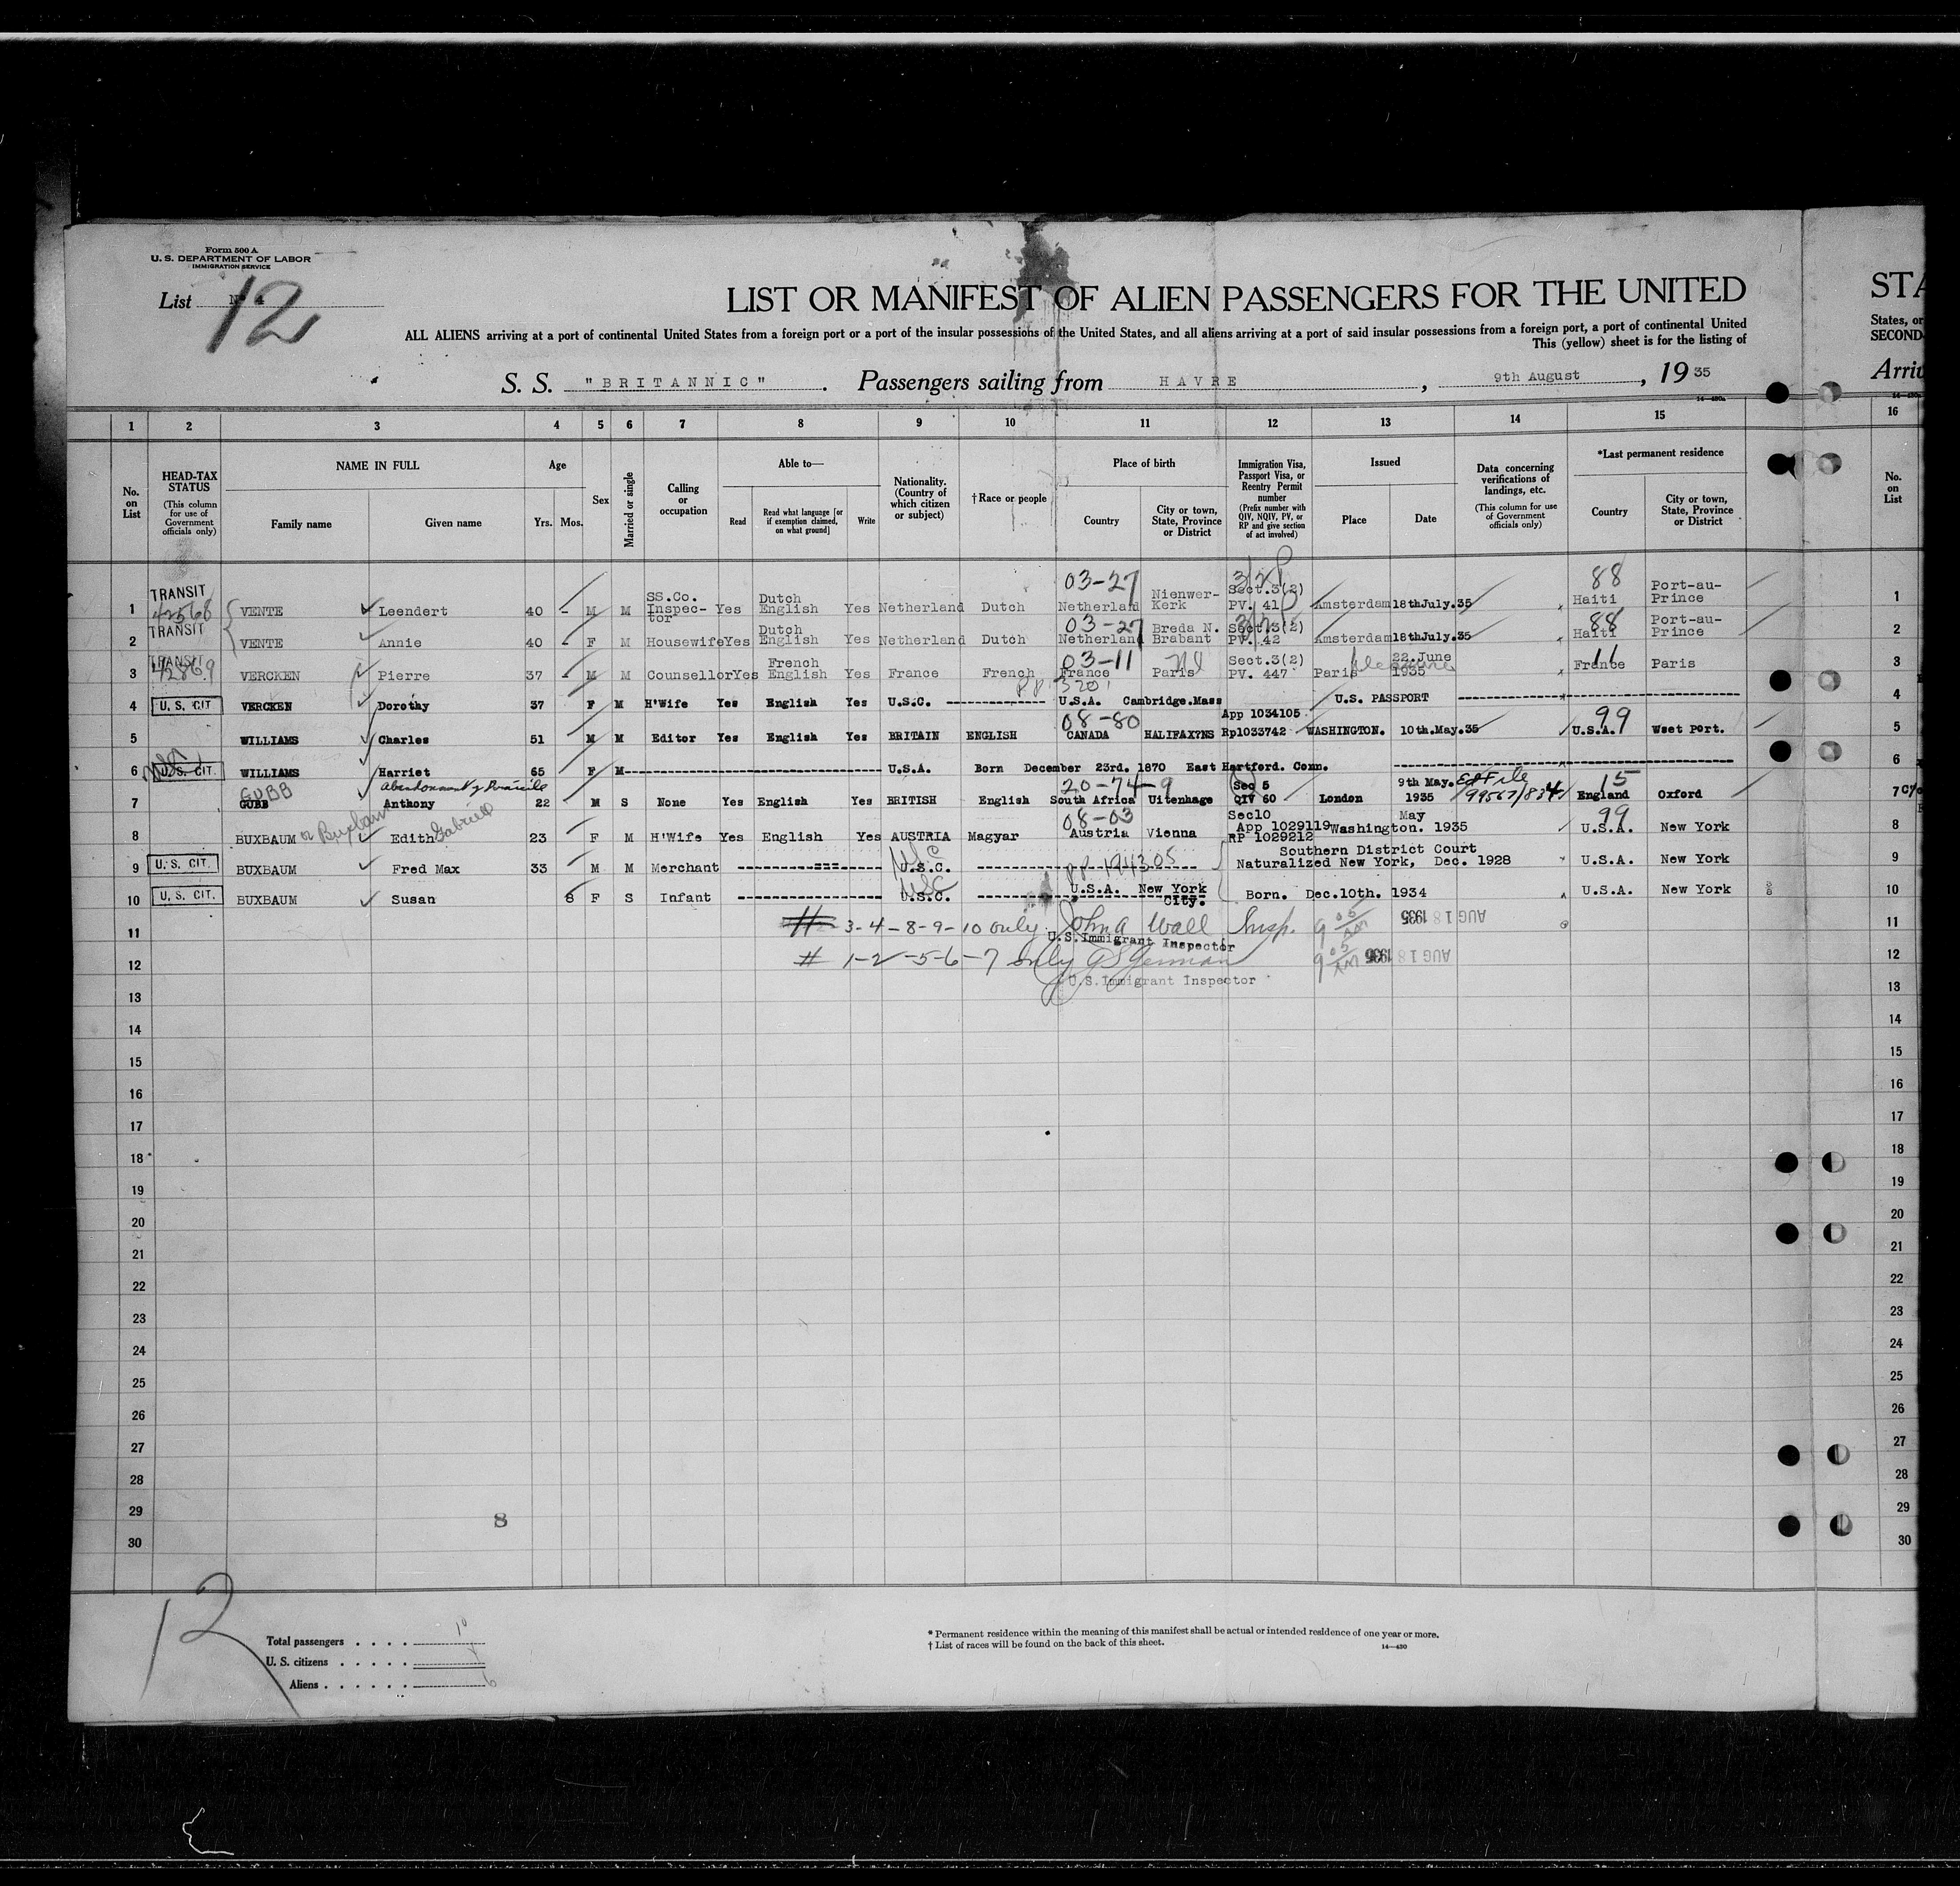 Form 500 A
U. S. DEPARTMENT OF LABOR
IMMIGRATION SERVICE
List 12
LIST OR MANIFEST OF ALIEN PASSENGERS FOR THE UNITED
STA
ALL ALIENS arriving at a port of continental United States from a foreign port or a port of the insular possessions of the United States, and all aliens arriving at a port of said insular possessions from a foreign port, a port of continental United
States, or
This (yellow) sheet is for the listing of
SECOND-
S. S. "BRITANNIC". Passengers sailing from HAVRE, 9th August, 19 35
Arriv
1 2 3 4 5 6 7 8 9 10 11 12 13 14 15 16
No. on List
HEAD-TAX STATUS (This column for use of Government officials only)
NAME IN FULL Family name Given name
Age Yrs. Mos.
Sex
Married or single
Calling or occupation
Able to— Read Read what language [or if exemption claimed, on what ground] Write
Nationality. (Country of which citizen or subject)
†Race or people
Place of birth Country City or town, State, Province or District
Immigration Visa, Passport Visa, or Reentry Permit number (Prefix number with QIV, NQIV, PV, or RP and give section of act involved)
Issued Place Date
Data concerning verifications of landings, etc. (This column for use of Government officials only)
*Last permanent residence Country City or town, State, Province or District
No. on List
1 TRANSIT 42568 VENTE Leendert 40 - M M SS.Co. Inspec-tor Yes Dutch English Yes Netherland Dutch 03-27 Netherland Nienwer-Kerk Sect.3(2) PV. 41 Amsterdam 18thJuly.35 88 Haiti Port-au-Prince 1
2 TRANSIT VENTE Annie 40 - F M Housewife Yes Dutch English Yes Netherland Dutch 03-27 Netherland Breda N. Brabant Sect.3(2) PV. 42 Amsterdam 18thJuly.35 88 Haiti Port-au-Prince 2
3 TRANSIT 42869 VERCKEN Pierre 37 - M M Counsellor Yes French English Yes France French 03-11 France Paris Sect.3(2) PV. 447 Paris 22.June 1935 11 France Paris 3
4 U. S. CIT VERCKEN Dorothy 37 F M H'Wife Yes English Yes U.S.C. ------------- U.S.A. Cambridge.Mass U.S. PASSPORT ------------- 4
5 WILLIAMS Charles 51 M M Editor Yes English Yes BRITAIN ENGLISH 08-80 CANADA HALIFAX?NS App 1034105 Rp1033742 WASHINGTON. 10th.May.35 99 U.S.A. West Port. 5
6 U. S. CIT. WILLIAMS Harriet 65 F M ------------- U.S.A. Born December 23rd. 1870 East Hartford. Conn. ------------- 6
7 GUBB GUBB Abandonment of Domicile Anthony 22 M S None Yes English Yes BRITISH English 20-74-9 South Africa Uitenhage Sec 5 QIV 60 London 9th May. 1935 99567/834 15 England Oxford 7 C/o
8 BUXBAUM or Buxbaum Edith Gabriele 23 F M H'Wife Yes English Yes AUSTRIA Magyar 08-03 Austria Vienna Sec10 App 1029119 RP 1029212 Washington. May 1935 99 U.S.A. New York 8
9 U. S. CIT. BUXBAUM Fred Max 33 M M Merchant ------------- U.S.C. ------------- Naturalized Southern District Court New York, Dec. 1928 U.S.A. New York 9
10 U. S. CIT. BUXBAUM Susan 8 F S Infant ------------- USC U.S.C. ------------- U.S.A. New York City. Born. Dec.10th. 1934 U.S.A. New York 10
11 3-4-8-9-10 only John A Wall Insp. 9 05 AM AUG 18 1935 11
U.S.Immigrant Inspector
12 # 1-2-5-6-7 only 9 05 AM AUG 18 1935 12
U.S.Immigrant Inspector
13 13
14 14
15 15
16 16
17 17
18 18
19 19
20 20
21 21
22 22
23 23
24 24
25 25
26 26
27 27
28 28
29 8 29
30 30
12
Total passengers . . . . 10
U. S. citizens . . . . .
Aliens . . . . . . 6
* Permanent residence within the meaning of this manifest shall be actual or intended residence of one year or more.
† List of races will be found on the back of this sheet.
14—430